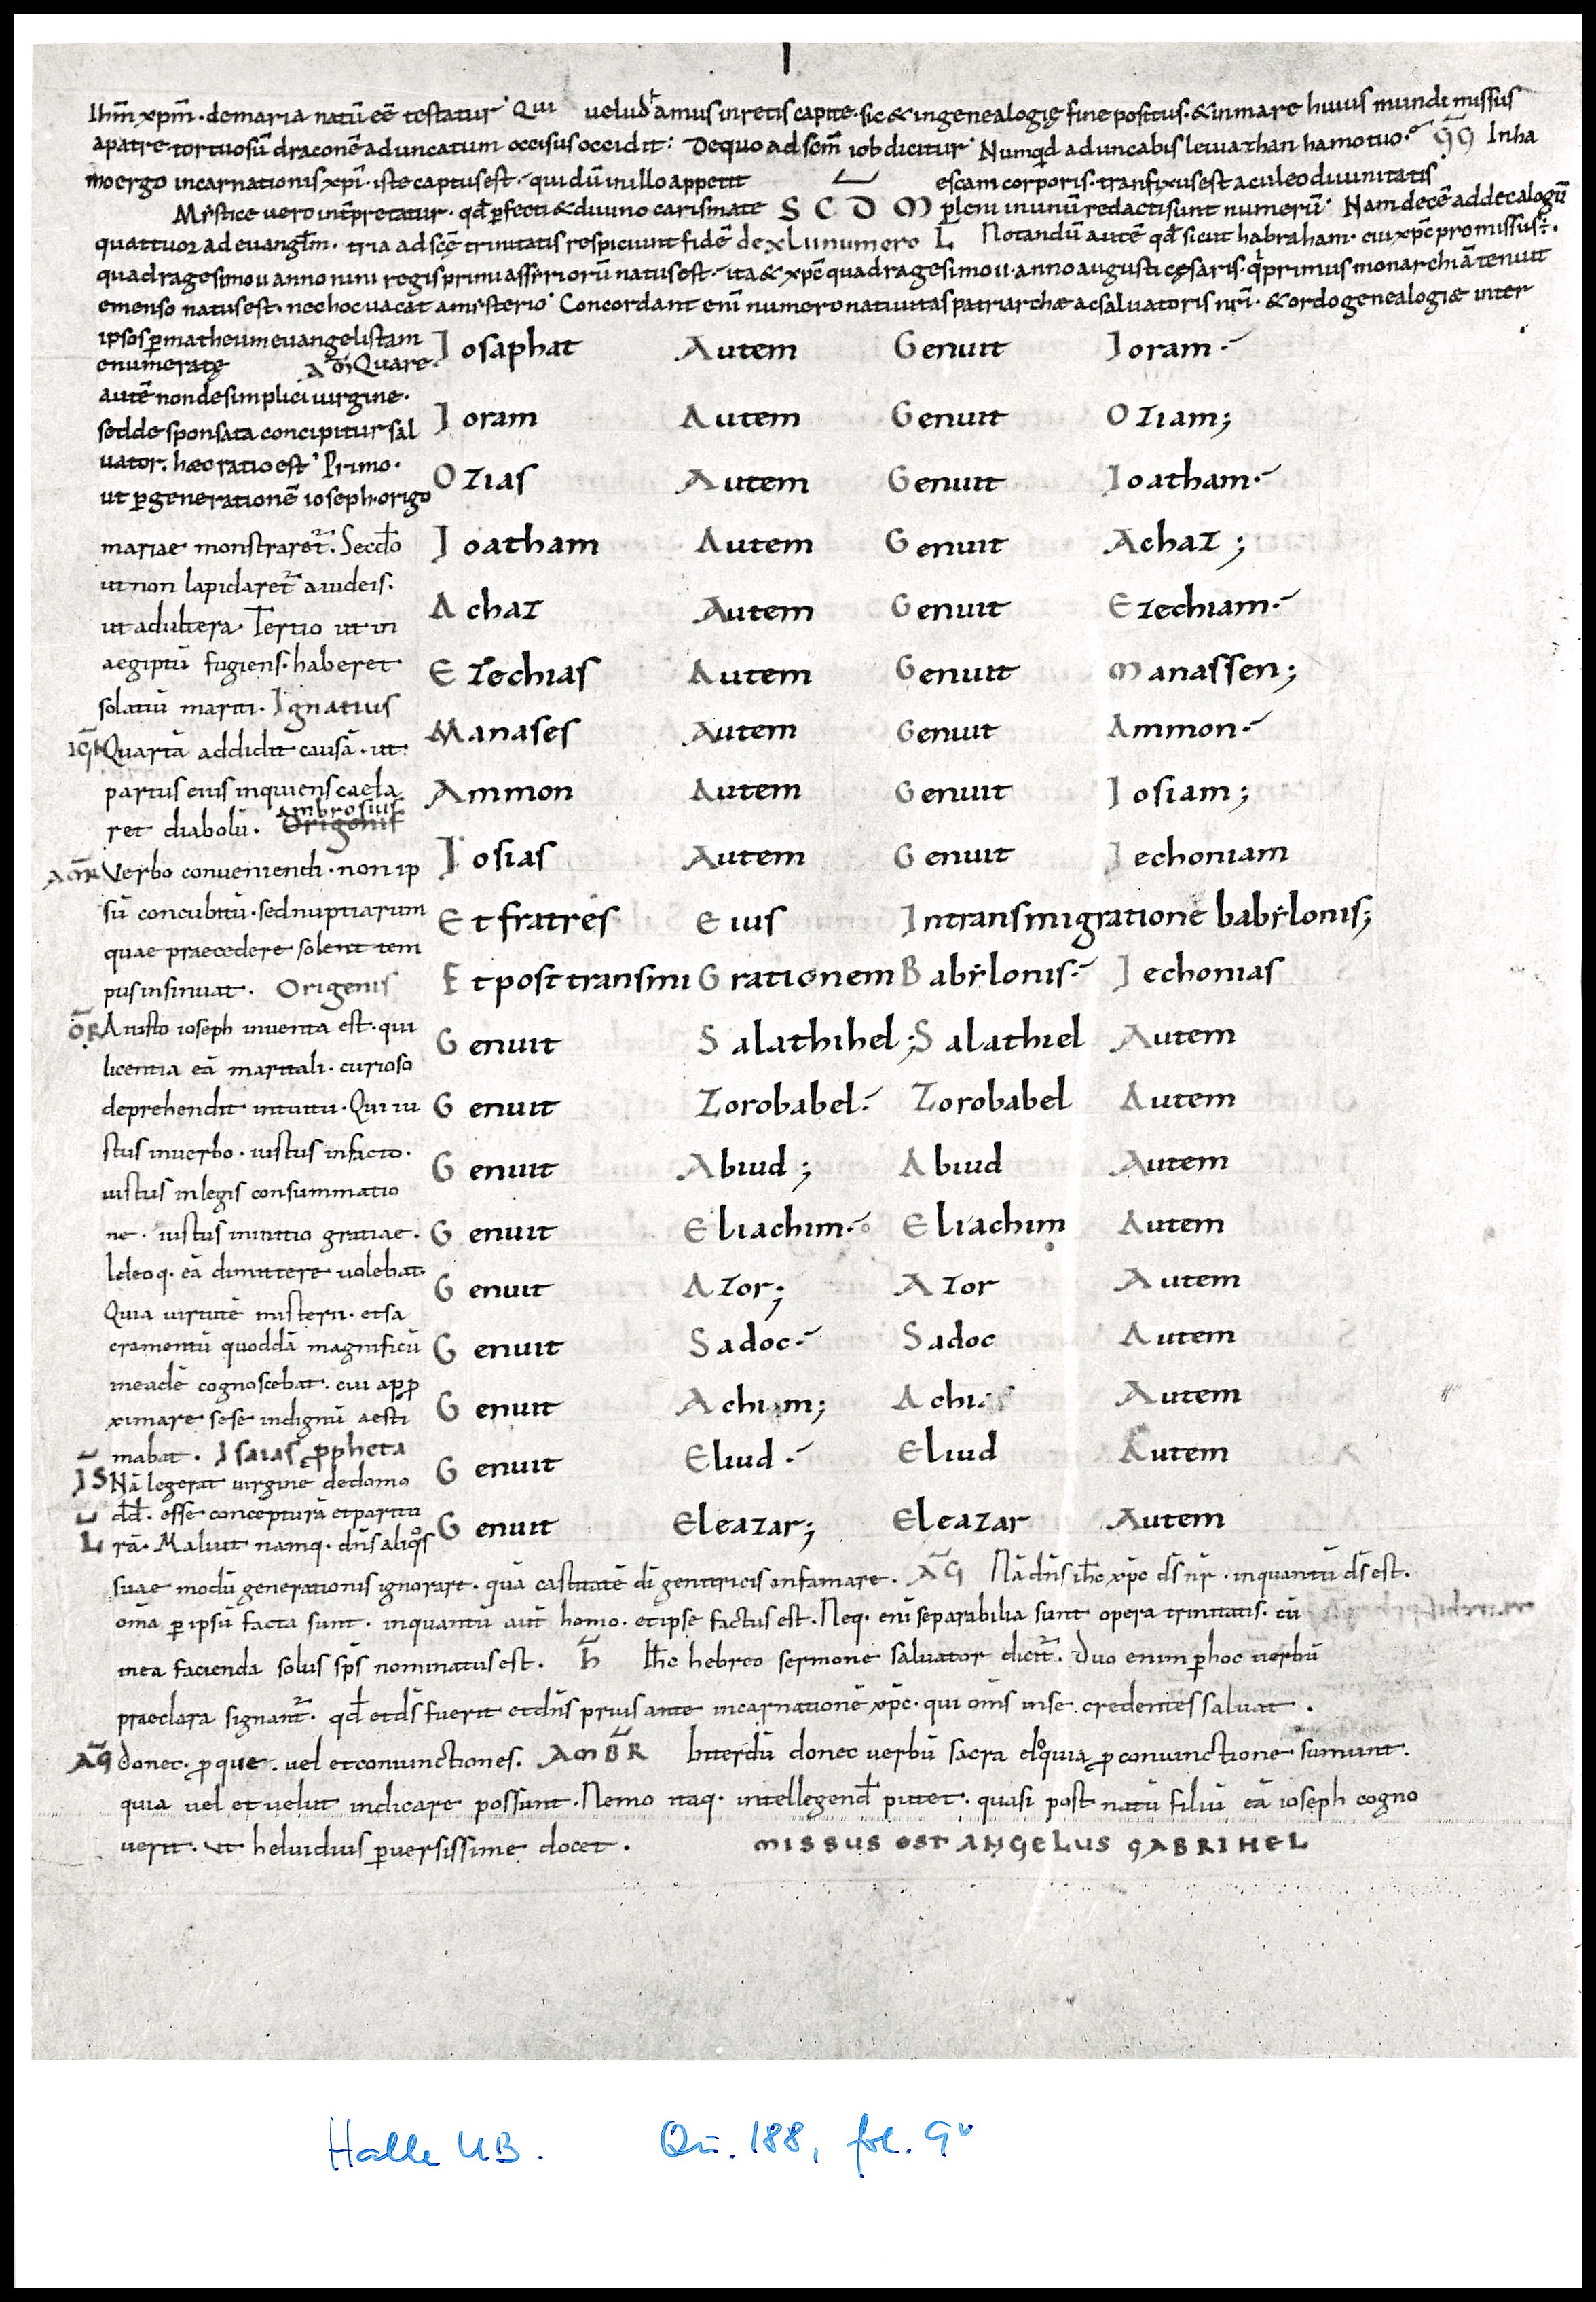 Ihm̄ xp̄m · demaria natū eē testatur · Qui ueludhamus inretis capite · sic & ingenealogię fine positus · & inmare huius mundi missus
apatre · tortuosū draconē aduncatum occisus occidit : Dequo ad scm̄ iob dicitur · Numqd aduncabis leuiathan hamo tuo · GG Inha
mo ergo incarnationis xp̄i · iste captus est · qui dū in illo appetit escam corporis · tranfixus est aculeo diuinitatis
Mystice uero int̄pretatur · qd̄ ꝑfecti & diuino carismate S C D M pleni inunū redacti sunt numerū · Nam decē ad decalogū
quattuor ad euanglm̄ · tria ad scę trinitatis respiciunt fidē de xlii numero L Notandū autē qd̄ sicut habraham · cui xp̄c promissus ÷
quadragesimo ii anno nini regis primi assyriorū natus est · ita & xp̄c quadragesimo ii · anno augusti cęsaris · qi primus monarchiā tenuit
emenso natus est · nec hoc uacat amysterio · Concordant enī numero natiuitas patriarchæ ac saluatoris nr̄i · & ordo genealogiæ inter
ipsos ꝑ matheum euangelistam
enumeratę Quare
Iosaphat Autem Genuit Ioram ·
autē non de simplici uirgine ·
sed de sponsata concipitur sal
Ioram Autem Genuit Oziam ;
uator · hæc ratio est · Primo ·
ut ꝑ generationē ioseph · origo
Ozias Autem Genuit Ioatham ·
mariae monstraret̄ · Secdo
Ioatham Autem Genuit Achaz ;
ut non lapidaret̄ a iudeis ·
ut adultera · Tertio ut in
Achaz Autem Genuit Ezechiam ·
aegiptū fugiens · haberet
Ezechias Autem Genuit Manassen ;
solatiū mariti · Ignatius
IGN Quartā addidit causā · ut
Manases Autem Genuit Ammon ·
partus eius inquiens caela
Ammon Autem Genuit Iosiam ;
ret diabolū · Ambrosius Origenis
Iosias Autem Genuit Iechoniam
AMR Verbo conueniendi · non ip
sū concubitū · sed nuptiarum
Et fratres Eius In transmigratione babylonis ;
quae praecedere solent tem
pus insinuat · Origenis
Et post transmiGrationem Babylonis · Iechonias
OR A iusto ioseph inuenta est · qui
Genuit Salathihel ; Salathiel Autem
licentia eā maritali · curioso
deprehendit intuitu · Qui iu
Genuit Zorobabel · Zorobabel Autem
stus in uerbo · iustus in facto ·
Genuit Abiud ; Abiud Autem
iustus in legis consummatio
ne · iustus in initio gratiae ·
Genuit Eliachim · Eliachim Autem
Ideoq · eā dimittere uolebat ·
Genuit Azor ; Azor Autem
Quia uirtutē misterii · et sa
cramentū quoddā magnificū
Genuit Sadoc · Sadoc Autem
in eadē cognoscebat · cui apꝓ
ximare sese indignū aesti
Genuit Achim ; Autem
mabat · Isaias ꝓpheta
IS Nā legerat uirginē de domo
Genuit Eliud · Eliud Autem
dd · esse concepturā et paritu
L rā · Maluit namq · dn̄s aliqos
Genuit Eleazar ; Eleazar Autem
suae modū generationis ignorare · quā castitatē di genitricis infamare · AG Nā dn̄s ih̄c xp̄c ds̄ nr̄ · in quantū ds̄ est ·
om̄a ꝑ ipsū facta sunt · in quantū aut̄ homo · et ipse factus est · Neq · enī separabilia sunt opera trinitatis · cū
in ea facienda solus sp̄s nominatus est · h Ih̄c hebreo sermone saluator dicit̄ · Duo enim ꝑ hoc uerbū
praeclara signant̄ · qd̄ et ds̄ fuerit et dn̄s prius ante incarnationē xp̄c · qui om̄s in se credentes saluat ·
AG donec · ꝓ que · uel et coniunctiones · AMBR Interdū donec uerbū sacra eloquia ꝓ coniunctione sumunt ·
quia uel et uelut indicare possunt · Nemo itaq · intellegend̄ putet · quasi post natū filiū eā ioseph cogno
uerit · ut heluidius ꝑuersissime docet · MISSUS EST ANGELUS GABRIHEL
Halle UB. Qu. 188, fol. 9v